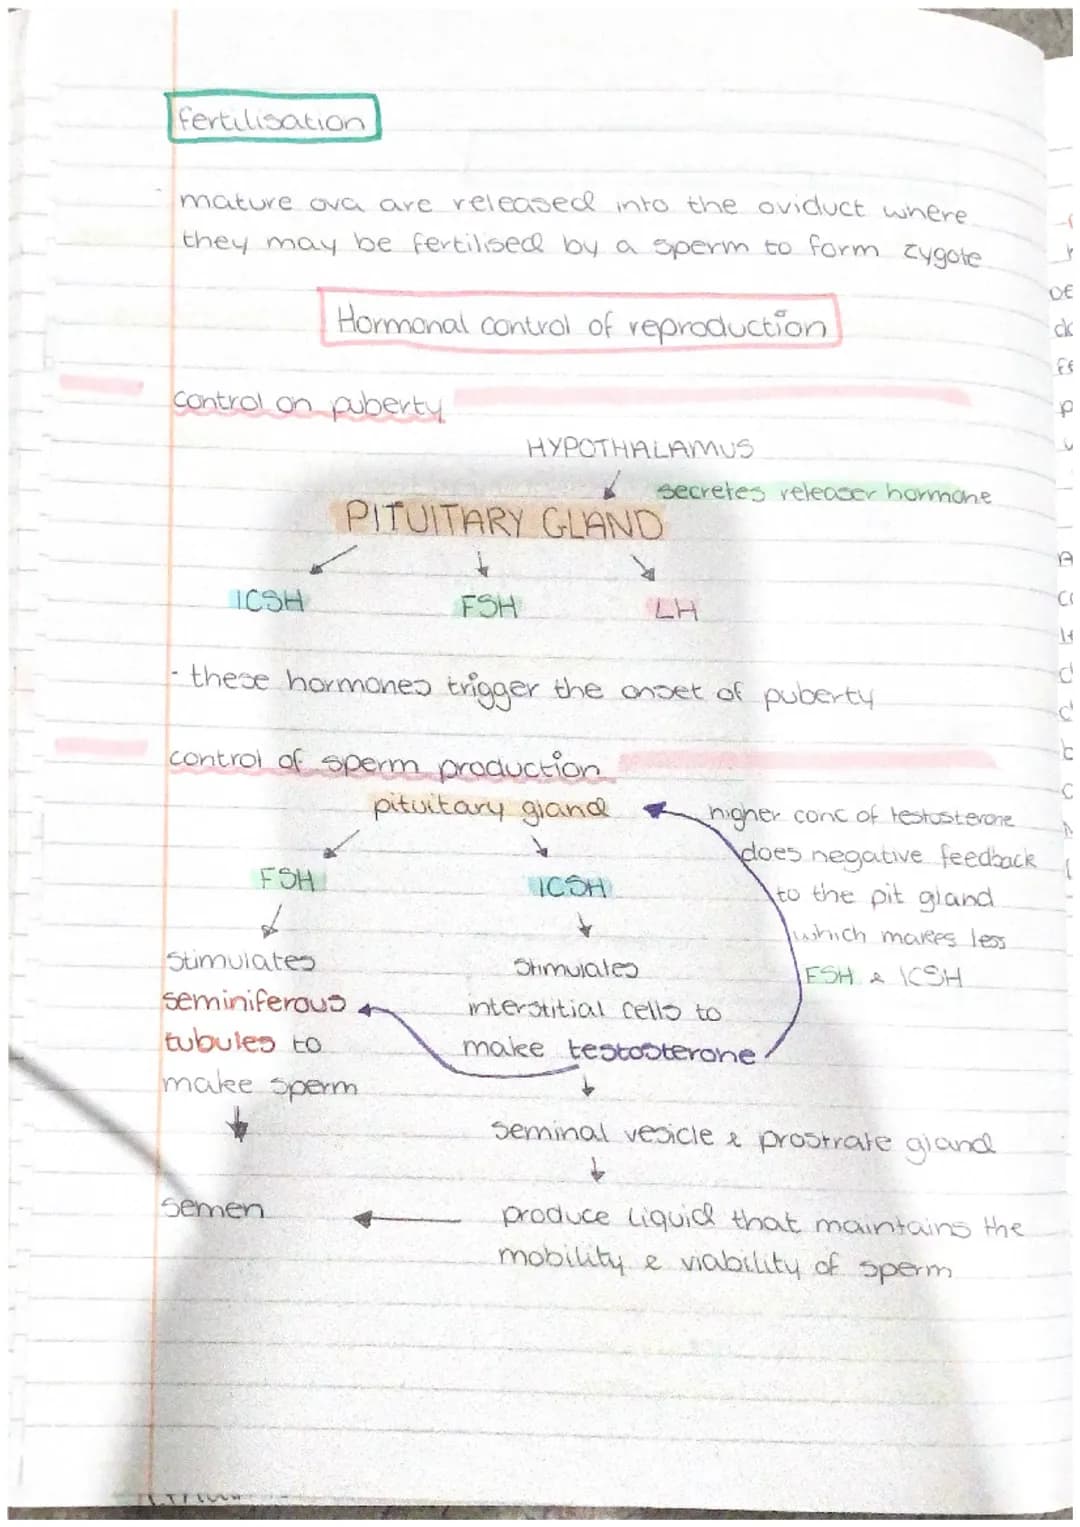 fertilisation
mature ova are released into the oviduct where
they may be fertilised by a sperm to form zygote
Hormonal control of reproduction
control on puberty
HYPOTHALAMUS
secretes releaser hormone
PITUITARY GLAND
ICSH FSH LH
· these hormones trigger the onset of puberty
control of sperm production
pituitary gland
higher conc of testosterone
does negative feedback
to the pit gland
which makes less
FSH & ICSH
FSH
stimulates
seminiferous
tubules to
make sperm
semen
ICSH
stimulates
interstitial cells to
make testosterone
seminal vesicle & prostrate gland
produce liquid that maintains the
mobility & viability of sperm